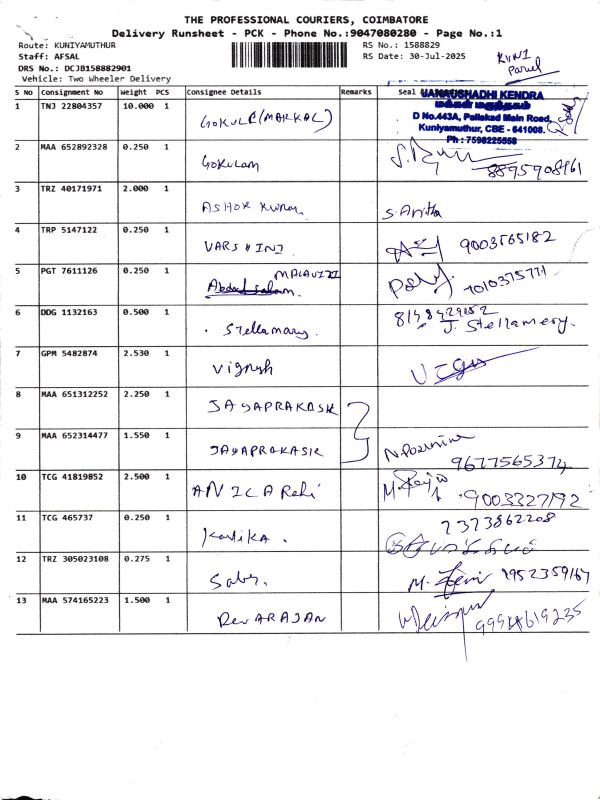 THE PROFESSIONAL COURIERS, COIMBATORE
Delivery Runsheet - PCK - Phone No.:9047080280 - Page No.:1
Route: KUNIYAMUTHUR
RS No.: 1588829
Staff: AFSAL
RS Date: 30-Jul-2025
DRS No.: DCJB158882901
Vehicle: Two Wheeler Delivery
S NO Consignment No Weight PCS Consignee Details Remarks Seal
JANAUSHADHI KENDRA
மக்கள் மருந்தகம்
D No.443A, Pallakad Main Road,
Kuniyamuthur, CBE - 641008.
Ph : 7598225558
1 TNJ 22804357 10.000 1 GOKULE(MARKAL)
2 MAA 652892328 0.250 1 Gokulam 8895908161
3 TRZ 40171971 2.000 1 ASHOK Kumar S. Anitha
4 TRP 5147122 0.250 1 VARSHINI 9003565182
5 PGT 7611126 0.250 1 MALAVIZI 7010375771
6 DDG 1132163 0.500 1 Stellamary. J. Stellamery.
7 GPM 5482874 2.530 1 Vignesh
8 MAA 651312252 2.250 1 JAYAPRAKASH
9 MAA 652314477 1.550 1 JAYAPRAKASH 9677565374
10 TCG 41819852 2.500 1 9003327192
11 TCG 465737 0.250 1 Kartika. 7373862208
12 TRZ 305023108 0.275 1
13 MAA 574165223 1.500 1 DevARAJAN